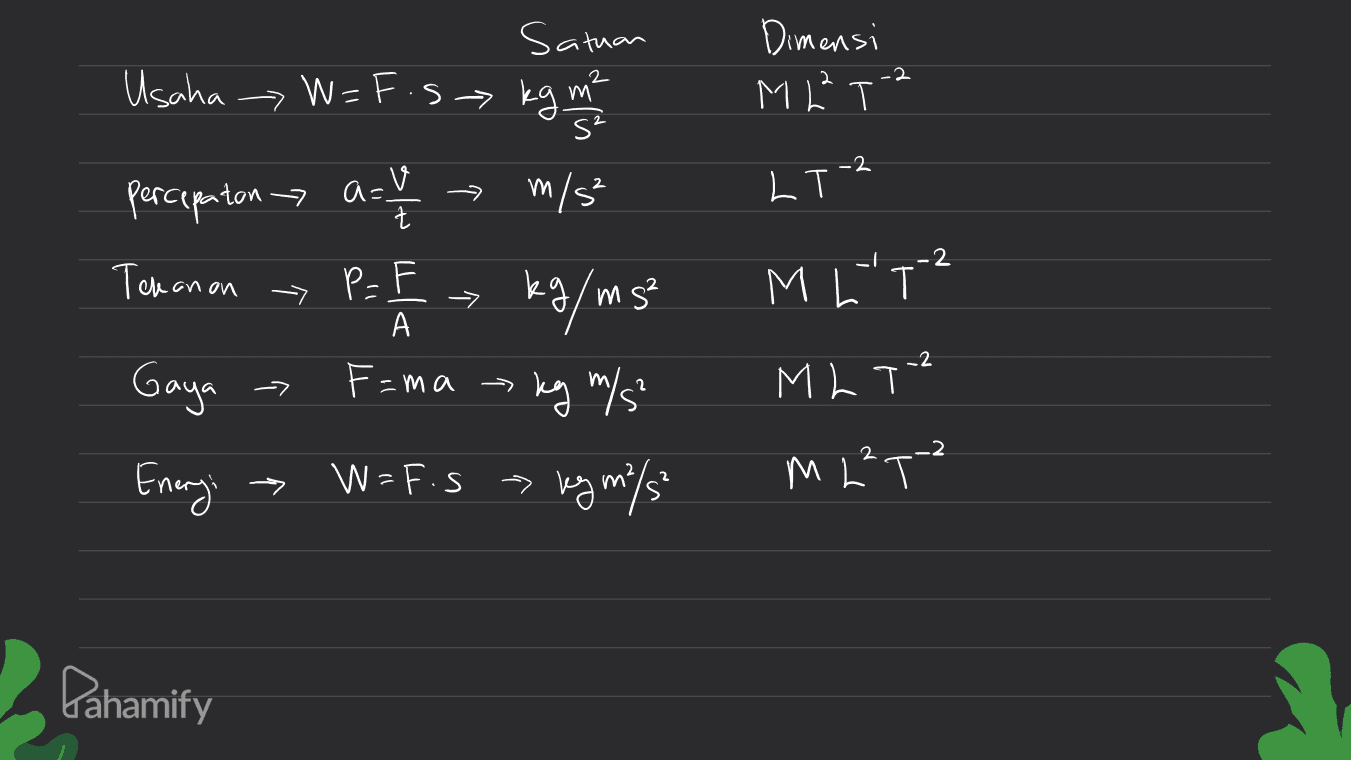 Satuan Dimensi
Usaha → W = F . s → kg m²/s² M L² T⁻²
percepatan → a = v/t → m/s² L T⁻²
Tekanan → P = F/A → kg/m s² M L⁻¹ T⁻²
Gaya → F = m a → kg m/s² M L T⁻²
Energi → W = F . s → kg m²/s² M L² T⁻²
Pahamify